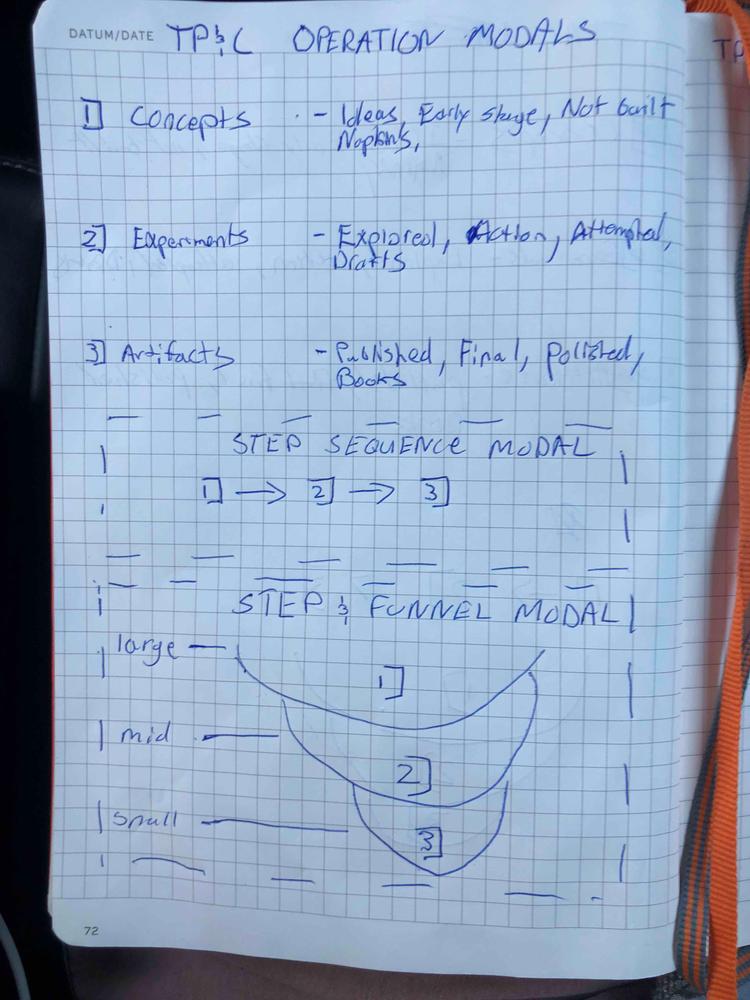 DATUM/DATE TP&C OPERATION MODALS
TP
1] Concepts - Ideas, Early stage, Not built
Napkins,
2] Experiments - Explored, Action, Attempted,
Drafts
3] Artifacts - Published, Final, Polished,
Books
STEP SEQUENCE MODAL
1] → 2] → 3]
STEP & FUNNEL MODAL
large
1]
mid
2]
small
3]
72